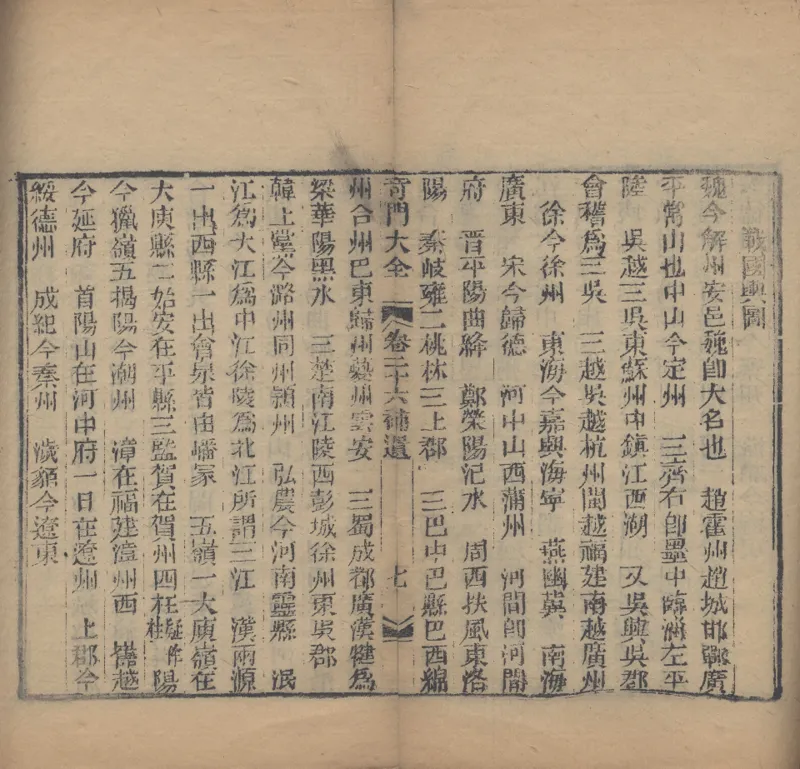 戰國輿圖
魏今解州安邑魏卽大名也 趙霍州趙城邯鄲廣
平常山也中山今定州 三齊右卽墨中臨淄左平
陸 吳越三吳東蘇州中鎮江西湖 又吳興吳郡
會稽爲三吳 三越吳越杭州閩越福建南越廣州
徐今徐州 東海今嘉興海寧 燕幽冀 南海
廣東 宋今歸德 河中山西蒲州 河間卽河間
府 晋平陽曲絳 鄭榮陽汜水 周西扶風東洛
陽 秦岐雍二桃林三上郡 三巴中巴縣巴西綿
奇門大全 卷三十六補遺 七
州合州巴東歸州夔州雲安 三蜀成都廣漢犍爲
梁華陽黑水 三楚南江陵西彭城徐州東吳郡
韓上黨今潞州同州潁州 弘農今河南靈縣 泯
江爲大江爲中江徐陵爲北江所謂三江 漢兩源
一出西縣一出會泉皆由嶓冢 五嶺一大庾嶺在
大庾縣二始安在平縣三監賀在賀州四在桂疑作陽
今獵嶺五揭陽今潮州 漳在福建漳州西 嶲越
今延府 首陽山在河中府一日在遼州 上郡今
綏德州 成紀今秦州 濊貊今遼東